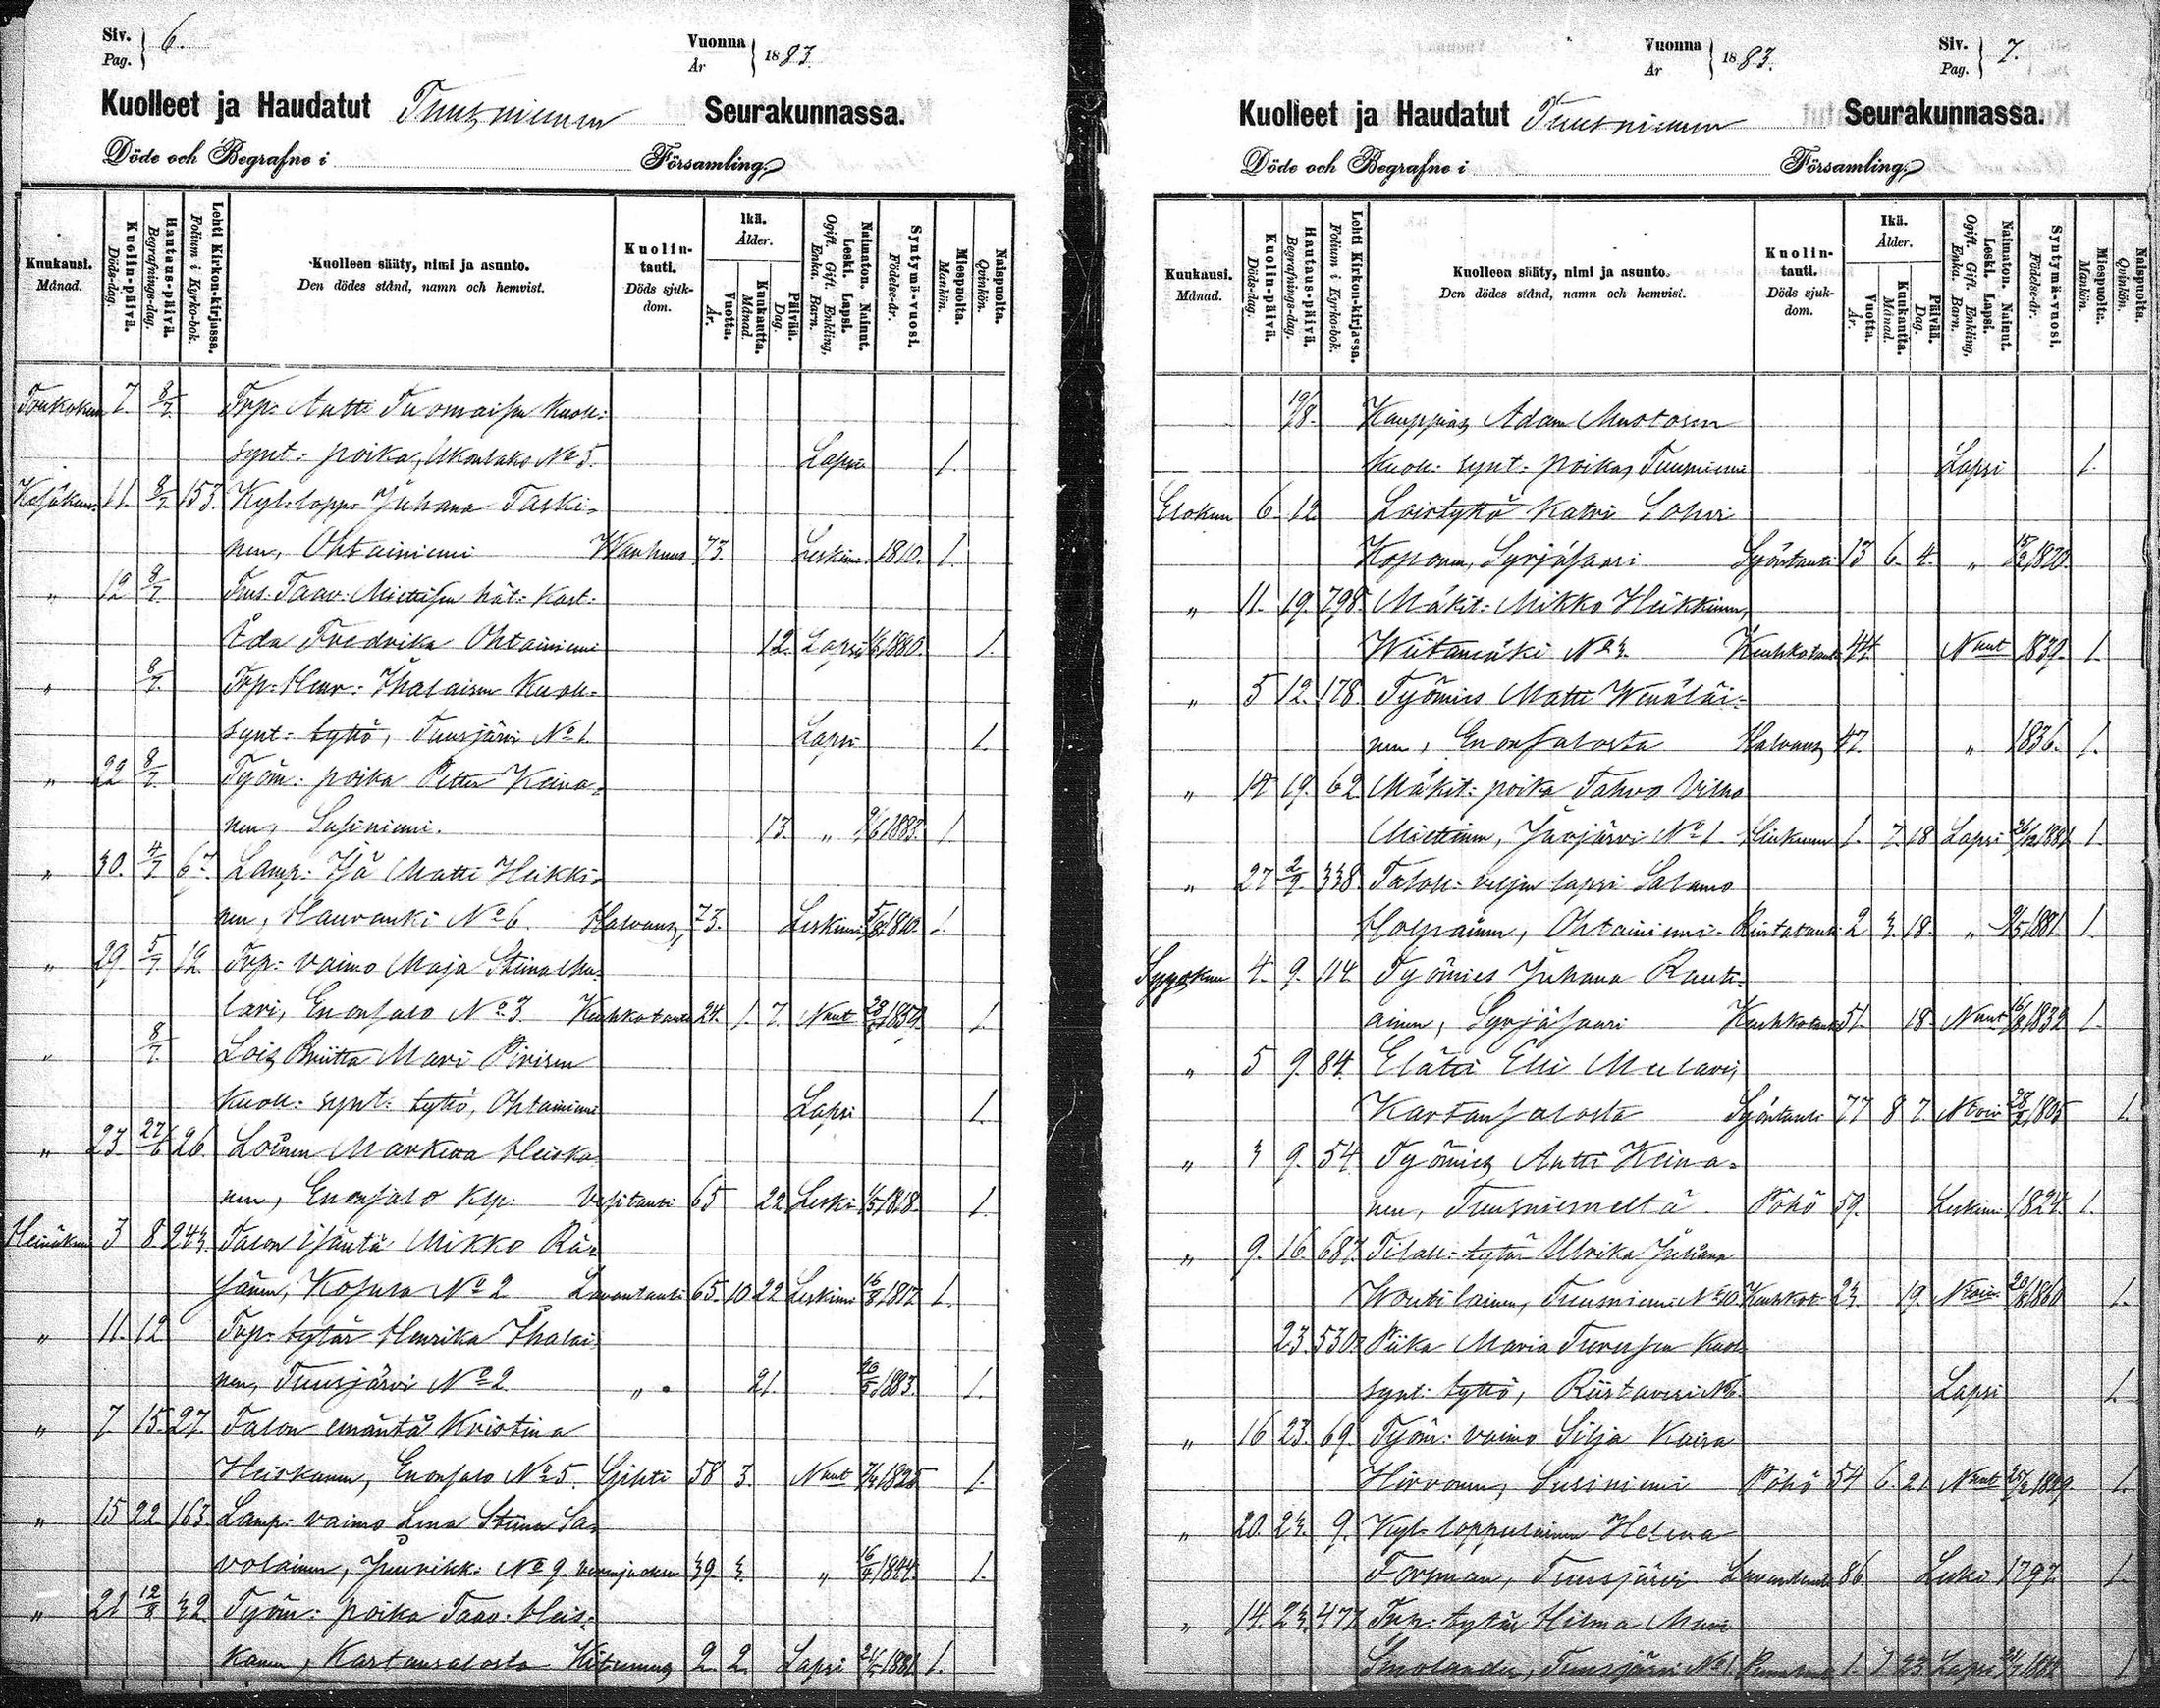 Siv. Pag. 6.
Vuonna År 1883.
Kuolleet ja Haudatut Tuusniemen Seurakunnassa.
Döde och Begrafne i Församling.
Kuukausi. Månad.
Kuolin-päivä. Döds-dag.
Hautaus-päivä. Begrafnings-dag.
Lehti Kirkon-kirjassa. Folium i Kyrko-bok.
Kuolleen sääty, nimi ja asunto. Den dödes stånd, namn och hemvist.
Kuolin-tauti. Döds sjuk-dom.
Ikä. Ålder.
Vuotta. År.
Kuukautta. Månad.
Päivää. Dag.
Naimaton. Nainut. Leski. Lapsi. Ogift. Gift. Enkling, Enka. Barn.
Syntymä-vuosi. Födelse-år.
Miespuolta. Mankön.
Naispuolta. Qvinkön.
Toukokuu 7. 8/7. Trp: Antti Tuomaisen kuoll:
synt: poika, No 5. Lapsi 1.
Kesäkuu 11. 8/7 153. Kyl: lopp: Juhana Taski-
nen, Ohtainiemi Wanhuus 73. Leskimi. 1810. 1.
" 12 8/7. Taav: Miettisen
Ida Fredrika Ohtainiemi 12. Lapsi 1880. 1.
" 8/7. Trp: Henr: Ihalaisen kuoll:
synt: tyttö, Tuusjärvi No 1. Lapsi 1.
" 22 8/7. Työm: poika Petter Keina-
nen, Susiniemi. 13. " 9/6 1883. 1
" 30. 4/7 67. Lamp: Isä Matti Heikki-
nen, No 6. Halvaus, 73. Leskimi 1810. 1.
" 29. 5/7. 12. Trp: vaimo Maja Stina Mu-
lari, Enonsalo No 3 Keuhkotauti 24. 1. 7. Naut 1.
" 8/7. Lois Briitta Mari Pirisen
kuoll: synt: tyttö, Ohtainiemi Lapsi 1.
" 23. 27/6 26. Loinen Markeeta Heiska-
nen, Enonsalo Klp: Vesitauti 65 22 Leski 1/5 1818. 1.
Heinäkuu 3 8. 243. Talon isäntä Mikko Rä-
sänen, Kosula No 2 Lavantauti 65. 10 22 Leskimi 1817. 1.
" 11. 12 Trp: tytär Henrika Ihalai-
nen, Tuusjärvi No 2 " 21. 20/5 1883. 1.
" 7. 15. 27. Talon emäntä Kristina
Heiskanen, Enonsalo No 5. 58 3. Naut 7/4 1825 1.
" 15 22. 163. Lamp: vaimo Lena Stiina Sa-
volainen, Juurikk: No 9. 39. 3. " 16/4 1844. 1.
" 21 12/8 32 Työm: poika Taav: Heis-
kanen, Kartansalosta Kitumus 2. 2. Lapsi 1881. 1.
Vuonna År 1883.
Siv. Pag. 7.
Kuolleet ja Haudatut Tuusniemen Seurakunnassa.
Döde och Begrafne i Församling.
Kuukausi. Månad.
Kuolin-päivä. Döds-dag.
Hautaus-päivä. Begrafnings-dag.
Lehti Kirkon-kirjassa. Folium i Kyrko-bok.
Kuolleen sääty, nimi ja asunto. Den dödes stånd, namn och hemvist.
Kuolin-tauti. Döds sjuk-dom.
Ikä. Ålder.
Vuotta. År.
Kuukautta. Månad.
Päivää. Dag.
Naimaton. Nainut. Leski. Lapsi. Ogift. Gift. Enkling, Enka. Barn.
Syntymä-vuosi. Födelse-år.
Miespuolta. Mankön.
Naispuolta. Qvinkön.
19/8. Kauppias Adam Mustosen
kuoll: synt: poika, Tuusniemi Lapsi 1.
Elokuu 6. 12 Loistyttö Katri Sohvi
Koponen, Syrjäsaari Syöntauti 13 6. 4. " 1870.
" 11. 19. 798. Mäkit: Mikko Heikkinen,
Wiitamäki No 3. Keuhkotauti 44. Naut 1839. 1.
" 5 12. 178. Työmies Matti Wenäläi-
nen, Enonsalosta Halvaus 47. " 1836. 1.
" 14 19. 62 Mäkit: poika Tahvo Vilho
Miettinen, Juojärvi No 1. Hinkuun 1. 7. 18 Lapsi 26/12 1881. 1.
" 27 2/9. 338. Taloll: veljen lapsi Salamo
Holopainen, Ohtainiemi. Rintatauti 2 3. 18. " 9/5 1881. 1.
Syyskuu 4. 9. 114. Työmies Juhana Rauti-
ainen, Syrjäsaari Keuhkotauti 51. 18. Naut 16/8 1832 1.
" 5 9. 84. Elätti Elli Mulari,
Kartansalosta Syöntauti 77 8 7. Ntoin 1805 1.
" 3 9. 54. Työmies Antti Keina-
nen, Tuusniemeltä Pöhö 59. Leskimi 1824. 1.
" 9. 16. 687. Tilall: tytär Ulrika Juliana
Woutilainen, Tuusniemi No 10. Keuhkot: 23. 19. Ntoin. 20/8 1860 1.
23. 530. Piika Maria Turusen kuol:
synt: tyttö, Riistavesi Lapsi 1.
" 16 23. 69. Työm: vaimo Silja Kaisa
Hirvonen, Susiniemi Pöhö 54 6. 21 Naut 25/2 1829. 1.
" 20. 23. 9. Kyl: loppulainen Helena
Forsman, Tuusjärvi Lavantauti 86. Leski 1797. 1.
" 14. 23. 477. Trp: tytär Hilma Mari
Smolander, Tuusjärvi No 1. 1. 1 23 Lapsi 1882. 1